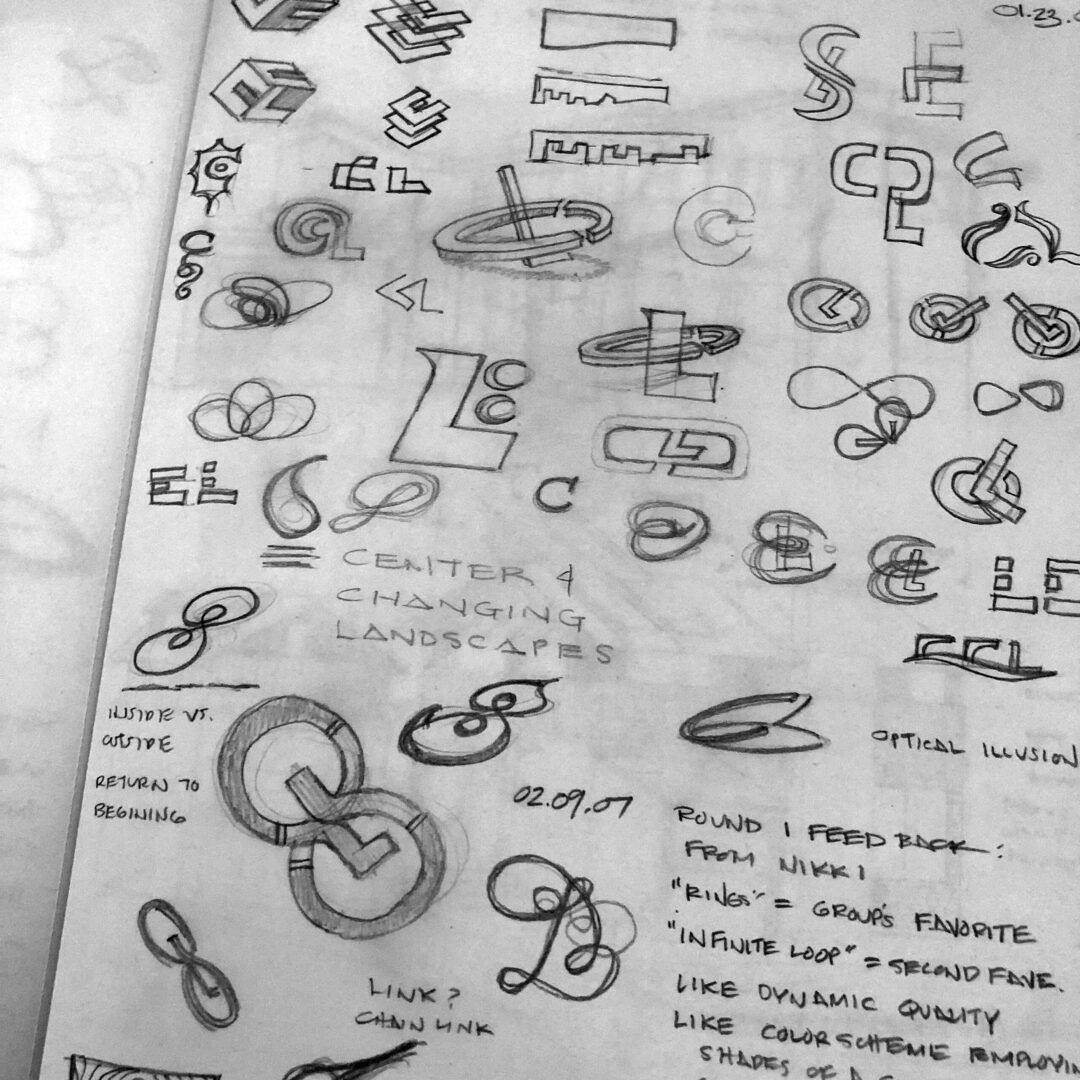 01.23.
EL
CENTER 4
CHANGING
LANDSCAPES
INSIDE VS.
OUTSIDE
RETURN TO
BEGINING
OPTICAL ILLUSION
02.09.07
ROUND 1 FEED BACK:
FROM NIKKI
"RINGS" = GROUP'S FAVORITE
"INFINITE LOOP" = SECOND FAVE.
LIKE DYNAMIC QUALITY
LIKE COLOR SCHEME EMPLOYIN
SHADES OF
LINK?
CHAIN LINK